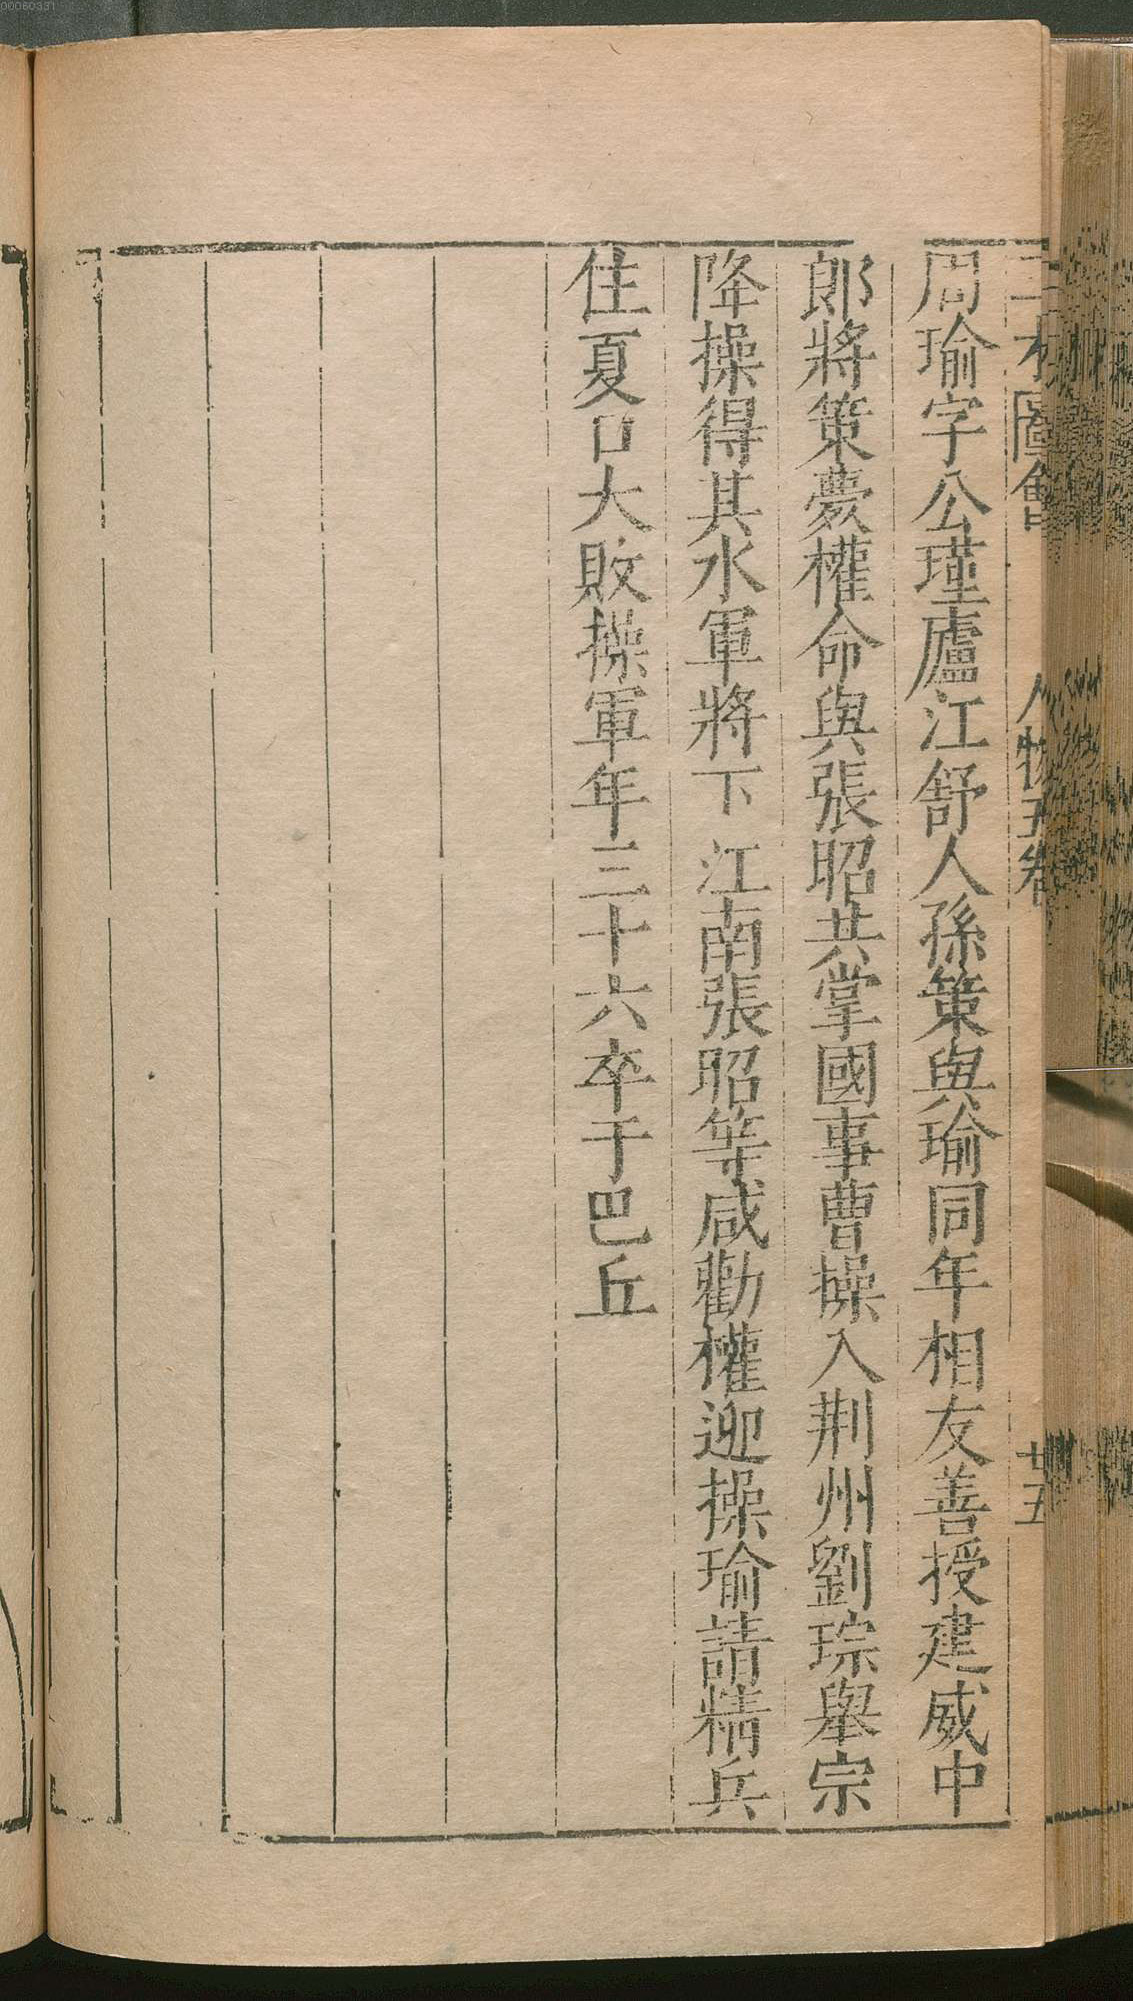 00060331
三才圖會 人物五卷 廿五
周瑜字公瑾廬江舒人孫策與瑜同年相友善授建威中
郎將策薨權命與張昭共掌國事曹操入荆州劉琮舉宗
降操得其水軍將下江南張昭等咸勸權迎操瑜請精兵
住夏口大敗操軍年三十六卒于巴丘